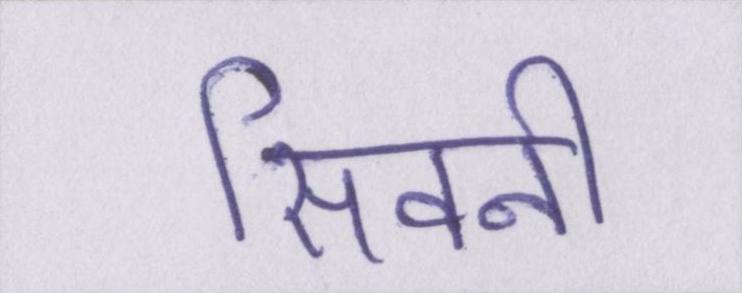 सिवनी